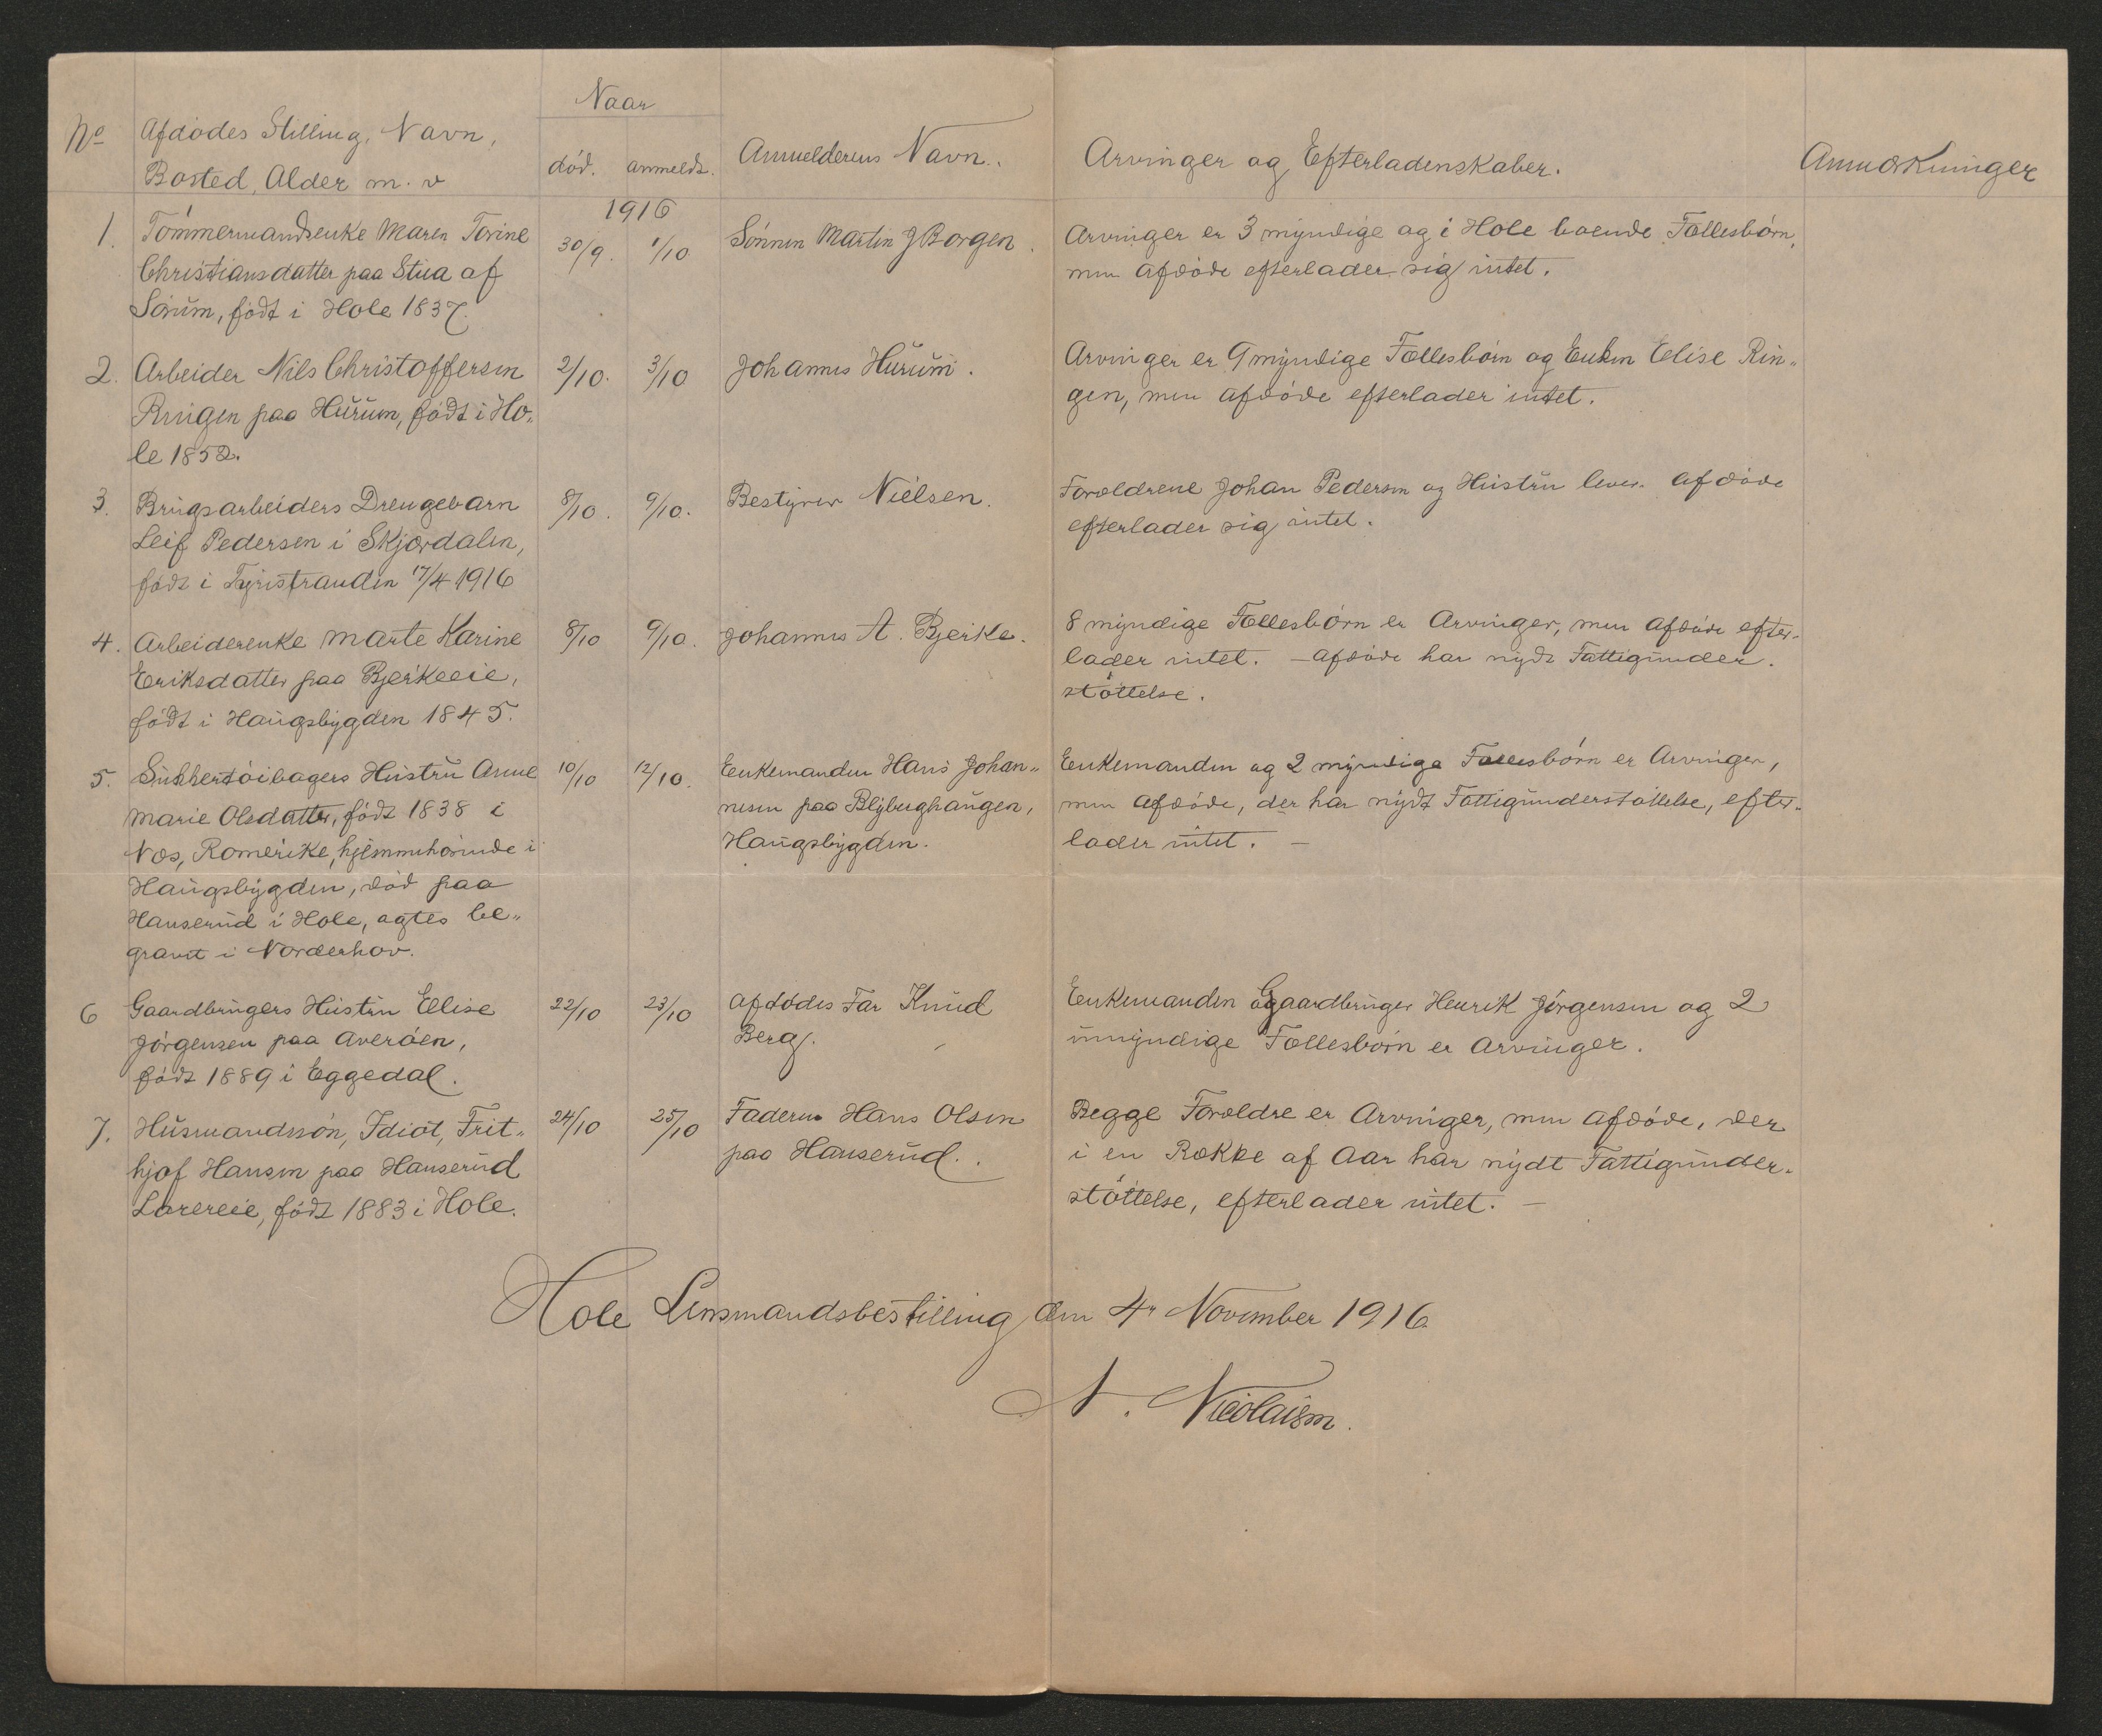 Naar
No Afdödes Stilling, Navn,
Bosted, Alder m. v
död. anmeldt.
Anmelderens Navn.
Arvinger og Efterladenskaber.
Anmærkninger
1916
1. Tömmermandsenke Maren Torine
Christiansdatter paa Stua af
Sörum, födt i Hole 1837.
30/9. 1/10
Sönnen Martin J Borgen.
Arvinger er 3 myndige og i Hole boende Fællesbörn,
men afdöde efterlader sig intet.
2. Arbeider Nils Christoffersen
Ringen paa Hurum, födt i Ho„
le 1852.
2/10. 3/10
Johannes Hurum.
Arvinger er 9 myndige Fællesbörn og Enken Elise Rin„
gen, men afdöde efterlader intet.
3. Brugsarbeiders Drengebarn
Leif Pedersen i Skjærdalen,
födt i Tyristranden 17/4 1916
8/10. 9/10.
Bestyrer Nielsen.
Forældrene Johan Pedersen og Hustru lever. Afdöde
efterlader sig intet.
4. Arbeiderenke Marte Karine
Eriksdatter paa Bjerkeeie,
födt i Haugsbygden 1845.
8/10 9/10.
Johannes A. Bjerke.
8 myndige Fællesbörn er Arvinger, men Afdöde efter-
lader intet. - Afdöde har nydt Fattigunder-
stöttelse.
5. Sukkertöibagers Hustru Anne
Marie Olsdatter, födt 1838 i
Næs, Romerike, hjemmehörende i
Haugsbygden, död paa
Hanserud i Hole, agtes be„
gravet i Norderhov.
10/10 12/10.
Enkemanden Hans Johan„
nesen paa Blyberghaugen,
Haugsbygden.
Enkemanden og 2 myndige Fællesbörn er Arvinger,
men afdöde, der har nydt Fattigunderstöttelse, efter-
lader intet. -
6 Gaardbrugers Hustru Ellise
Jörgensen paa Averöen,
födt 1889 i Eggedal.
22/10 23/10
Afdödes Far Knud
Berg.
Enkemanden Gaardbruger Henrik Jörgensen og 2
umyndige Fællesbörn er Arvinger.
7. Husmandssön, Idiot, Frit„
hjof Hansen paa Hanserud
Lorereie, födt 1883 i Hole.
24/10 25/10
Faderen Hans Olsen
paa Hanserud.
Begge Forældre er Arvinger, men Afdöde, der
i en Række af Aar har nydt Fattigunder-
stöttelse, efterlader intet. -
Hole Lensmandsbestilling den 4 November 1916.
N. Nicolaisen.